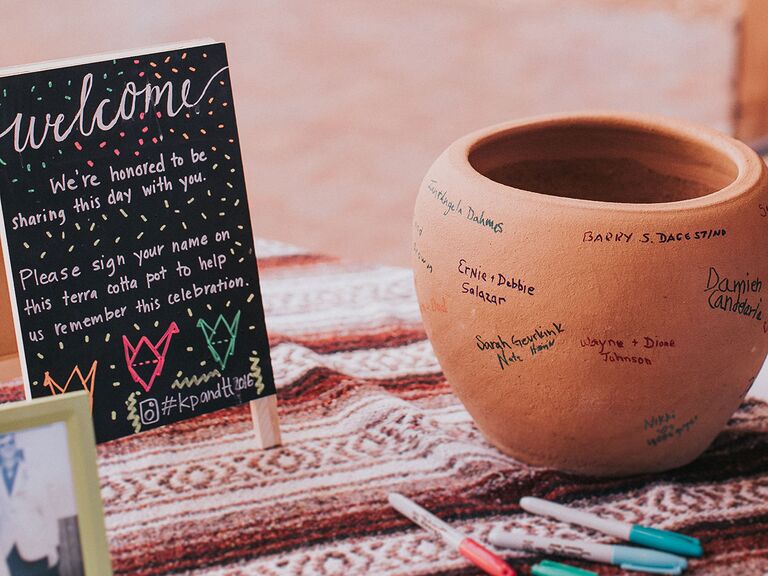 welcome
We're honored to be
sharing this day with you.
Please sign your name on
this terra cotta pot to help
us remember this celebration.
#kpandtt2016
Dahmes
BARRY S. DAGESTINO
Ernie + Debbie
Salazar
Damien
Candelaria
Sarah Geurkink
Nate
Wayne + Diane
Johnson
Nikki